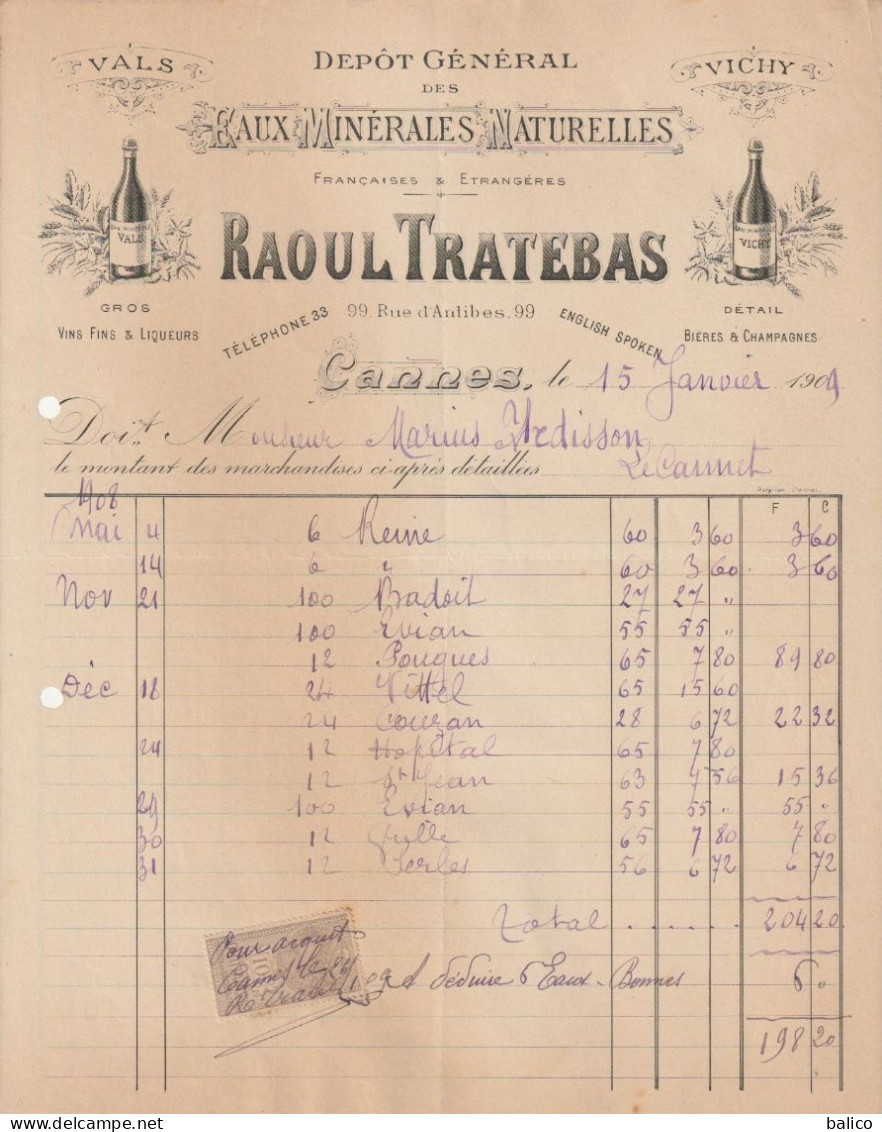 VALS
DEPÔT GÉNÉRAL
VICHY
DES
EAUX MINÉRALES NATURELLES
FRANÇAISES & ETRANGÈRES
VALS
VICHY
RAOUL TRATEBAS
GROS
VINS FINS & LIQUEURS
TÉLÉPHONE 33
99. Rue d'Antibes. 99
ENGLISH SPOKEN
DÉTAIL
BIÈRES & CHAMPAGNES
Cannes, le 15 Janvier 1909
Doit Monsieur Marius
le montant des marchandises ci-après détaillées Le Cannet
1908 F C
Mai 4 6 Reine 60 3 60 3 60
14 6 " 60 3 60 3 60
Nov 21 100 Badoit 27 27 "
100 Evian 55 55 "
12 Pougues 65 7 80 89 80
Déc 18 24 Vittel 65 15 60
24 Couzan 28 6 72 22 32
24 12 Hopital 65 7 80
12 St Jean 63 7 56 15 36
29 100 Evian 55 55 " 55 "
30 12 65 7 80 7 80
31 12 Perles 56 6 72 6 72
Total ........ 204 20
Pour acquit
10
Cannes le
A déduire 6 Eaux-Bonnes 6 "
198 20
delcampe.net
balico